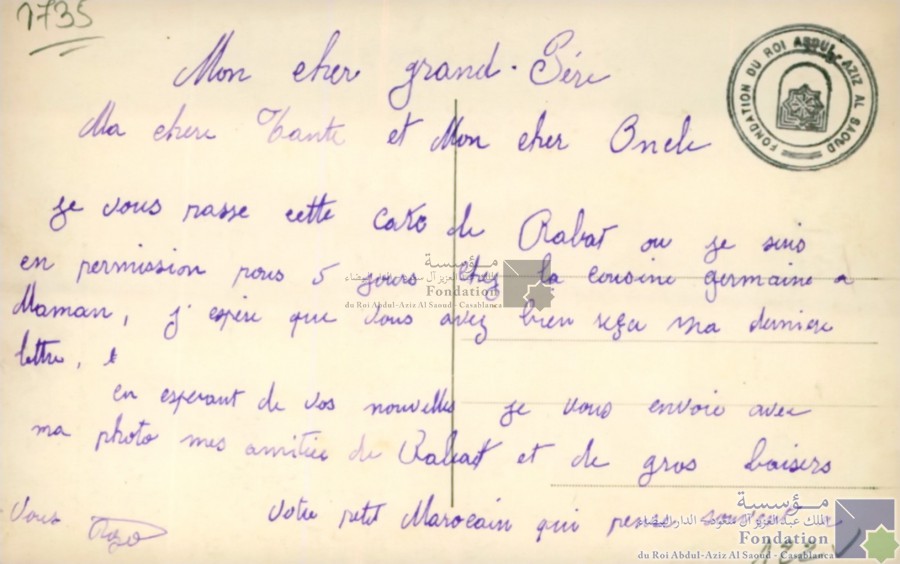 1735
Mon cher grand-Père
Ma chere Tante et Mon cher Oncle
FONDATION DU ROI ABDUL AZIZ AL SAOUD
je vous passe cette carte de Rabat ou je suis
en permission pour 5 jours chez la cousine germaine a
Maman, j'espere que vous avez bien reçu ma derniere
lettre,
en esperant de vos nouvelles je vous envoie avec
ma photo mes amitiée de Rabat et de gros baisers
votre petit Marocain qui pense souvent a
vous
مؤسسة
الملك عبد العزيز آل سعود - الدار البيضاء
Fondation
du Roi Abdul-Aziz Al Saoud - Casablanca
مؤسسة
الملك عبد العزيز آل سعود - الدار البيضاء
Fondation
du Roi Abdul-Aziz Al Saoud - Casablanca